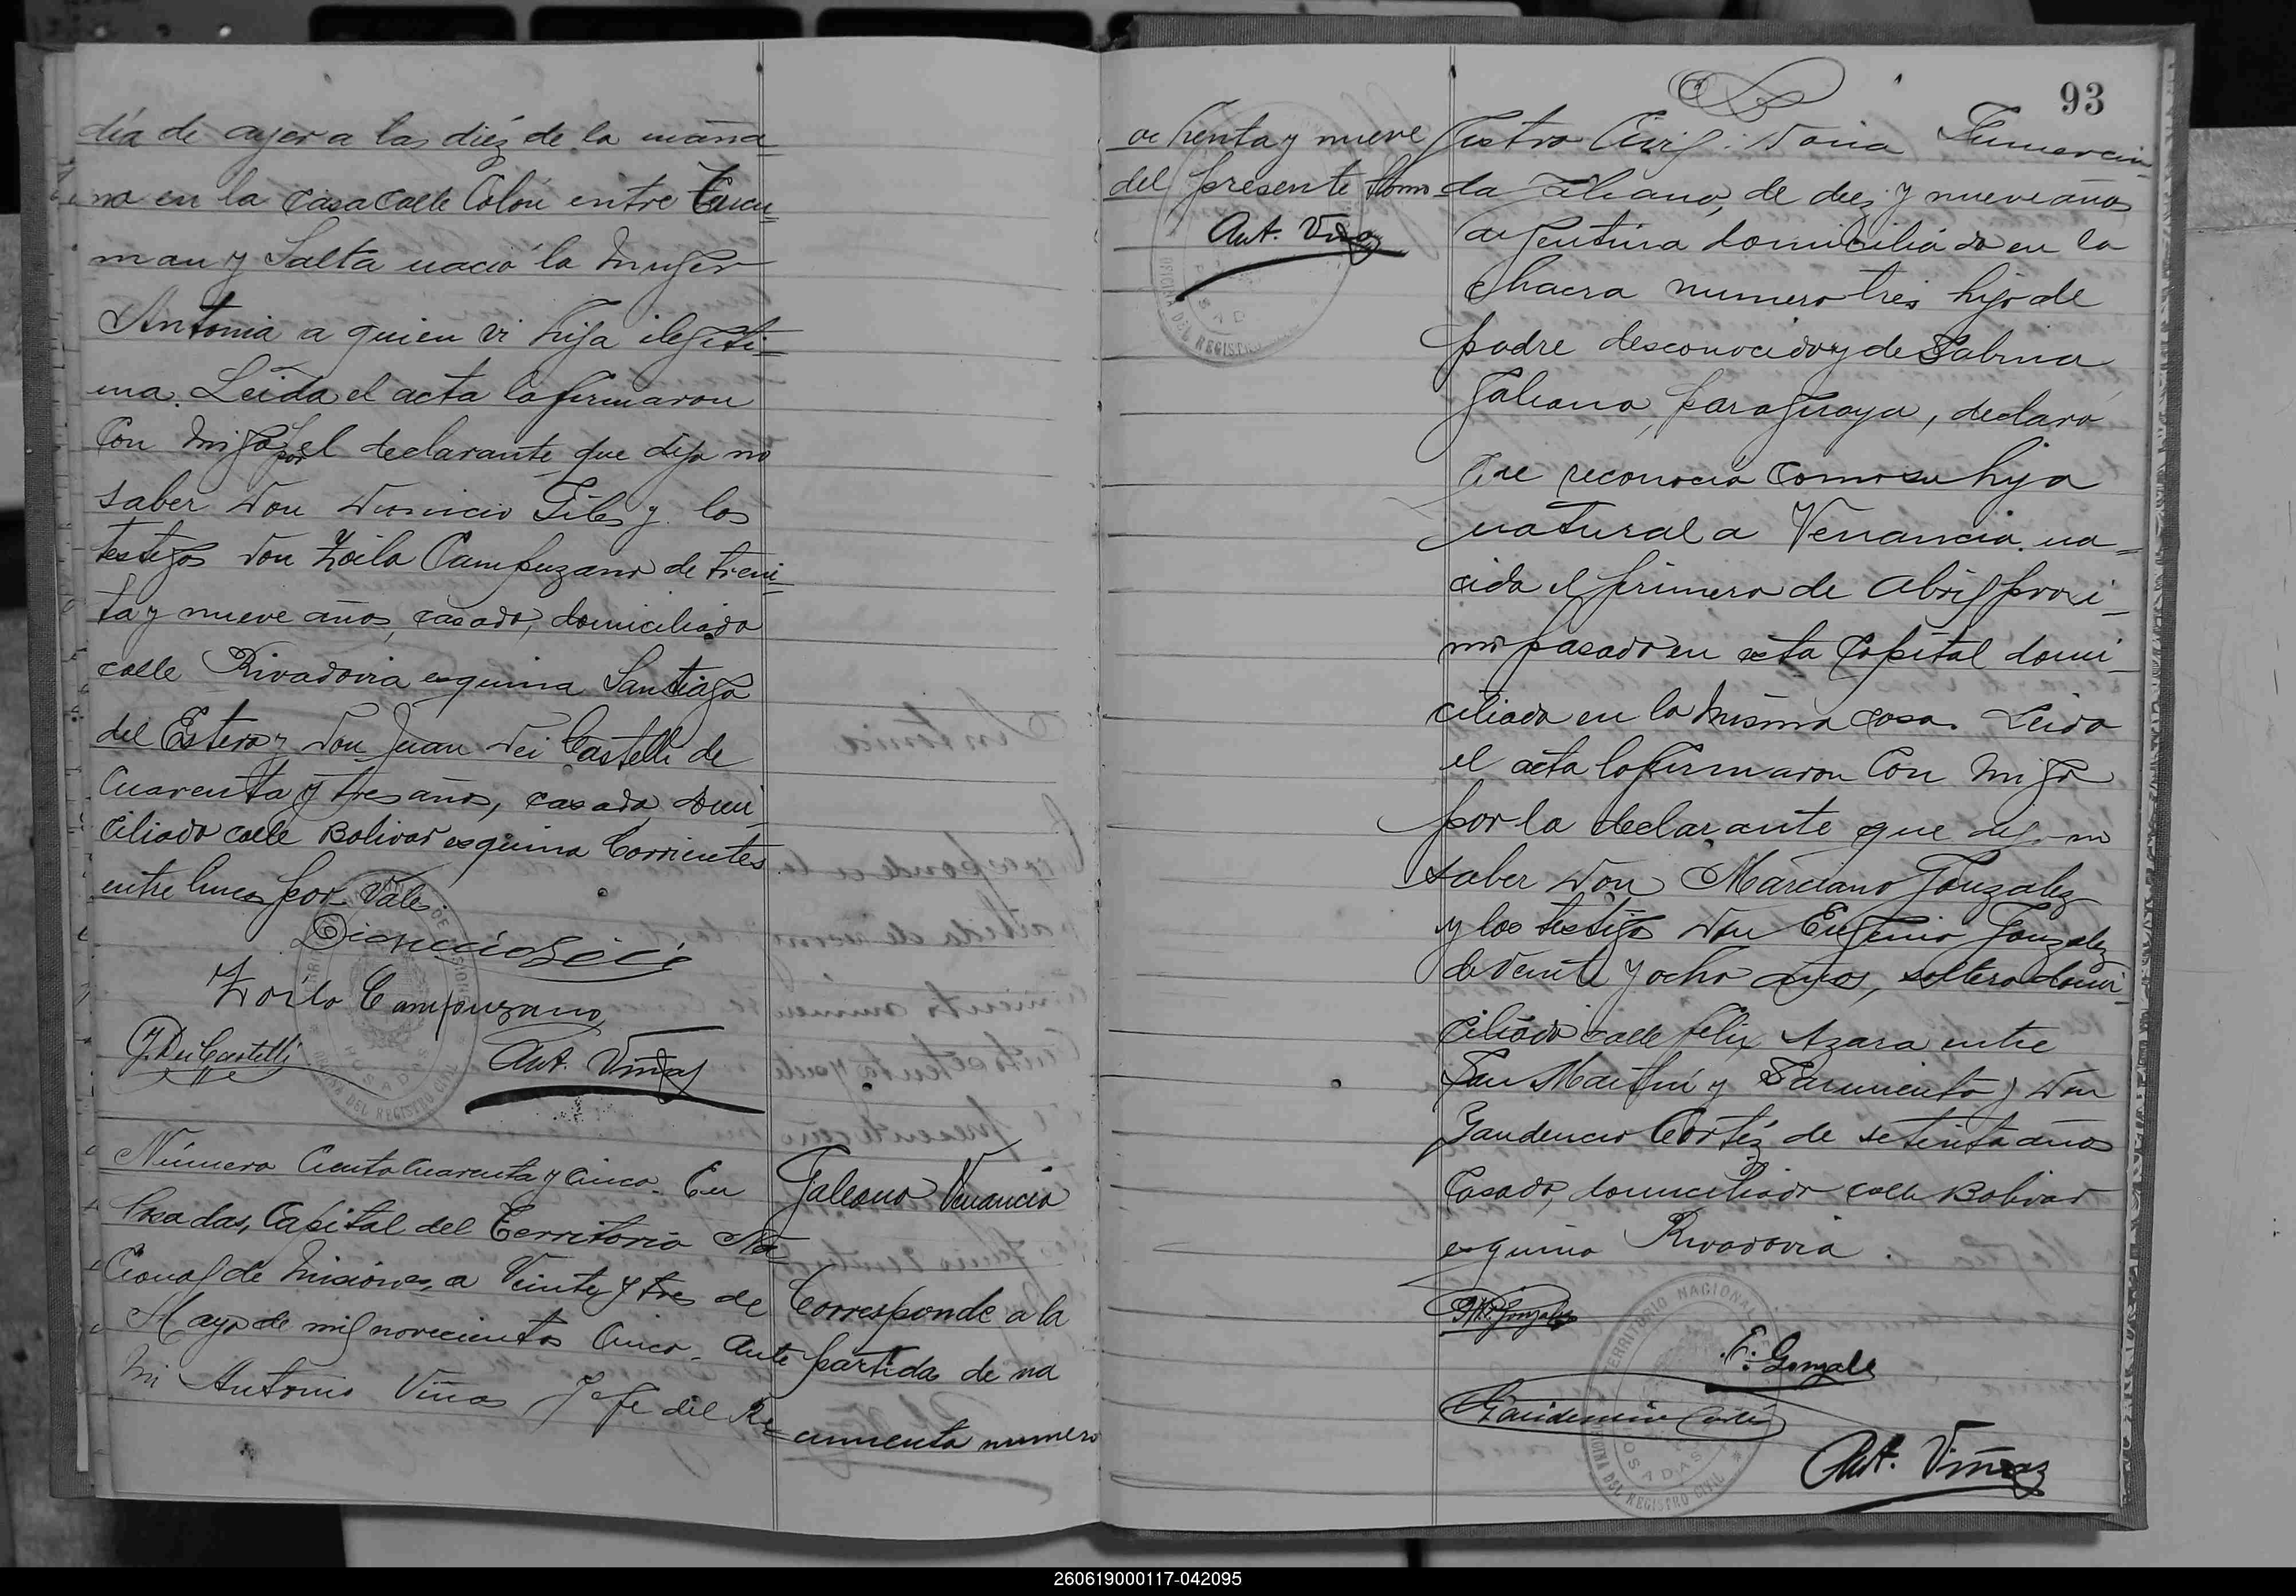 día de ayer a las diéz de la maña=
na en la casa calle Colón entre Tucu=
man y Salta nació la mujer
Antonia a quien vi hija ilegiti=
ma. Leida el acta la firmaron
con migo por el declarante que dijo no
saber Don Dionicio Giles y los
testigos Don Zoilo Campuzano de trein=
ta y nueve años, casado, domiciliado
calle Rivadavia esquina Santiago
del Estero y Don Juan Dei Castelli de
cuarenta y tres años, casado, domi
ciliado calle Bolivar esquina Corrientes
entre lineas por Vale.
Zoilo Campuzano
J. Dei Castelli
Ant. Viñas
Número Ciento cuarenta y cinco. En
Posadas, Capital del Territorio Na=
cional de Misiones, a Veinte y tres de
Mayo de mil novecientos cinco. Ante
mi Antonio Viñas Jefe del Re=
Galeano Venancia
Corresponde a la
partida de na
cimiento numero
93
ochenta y nueve
del presente tomo
Ant. Viñas
gistro Civil: Doña Fumercin=
da Galeano, de diez y nueve años
argentina domiciliada en la
chacra numero tres hija de
padre desconocido y de Sabina
Galeano, paraguaya, declaró
que reconocia como su hija
natural a Venancia na=
cida el primero de Abril proxi=
mo pasado en esta Capital domi=
ciliada en la misma casa. Leida
el acta la firmaron con migo
por la declarante que dijo no
saber Don Marciano Gonzalez
y los testigos Don Eugenio Gonzalez
de veinte y ocho años, soltero domi=
ciliado calle Felix Azara entre
San Martín y Sarmiento y Don
Gaudencio Cortéz de setenta años
casado, domiciliado calle Bolivar
esquina Rivadavia.
E. Gonzale
Gaudencio Cortéz
Ant. Viñas
TERRITORIO NACIONAL
OFICINA DEL REGISTRO CIVIL
POSADAS
260619000117-042095